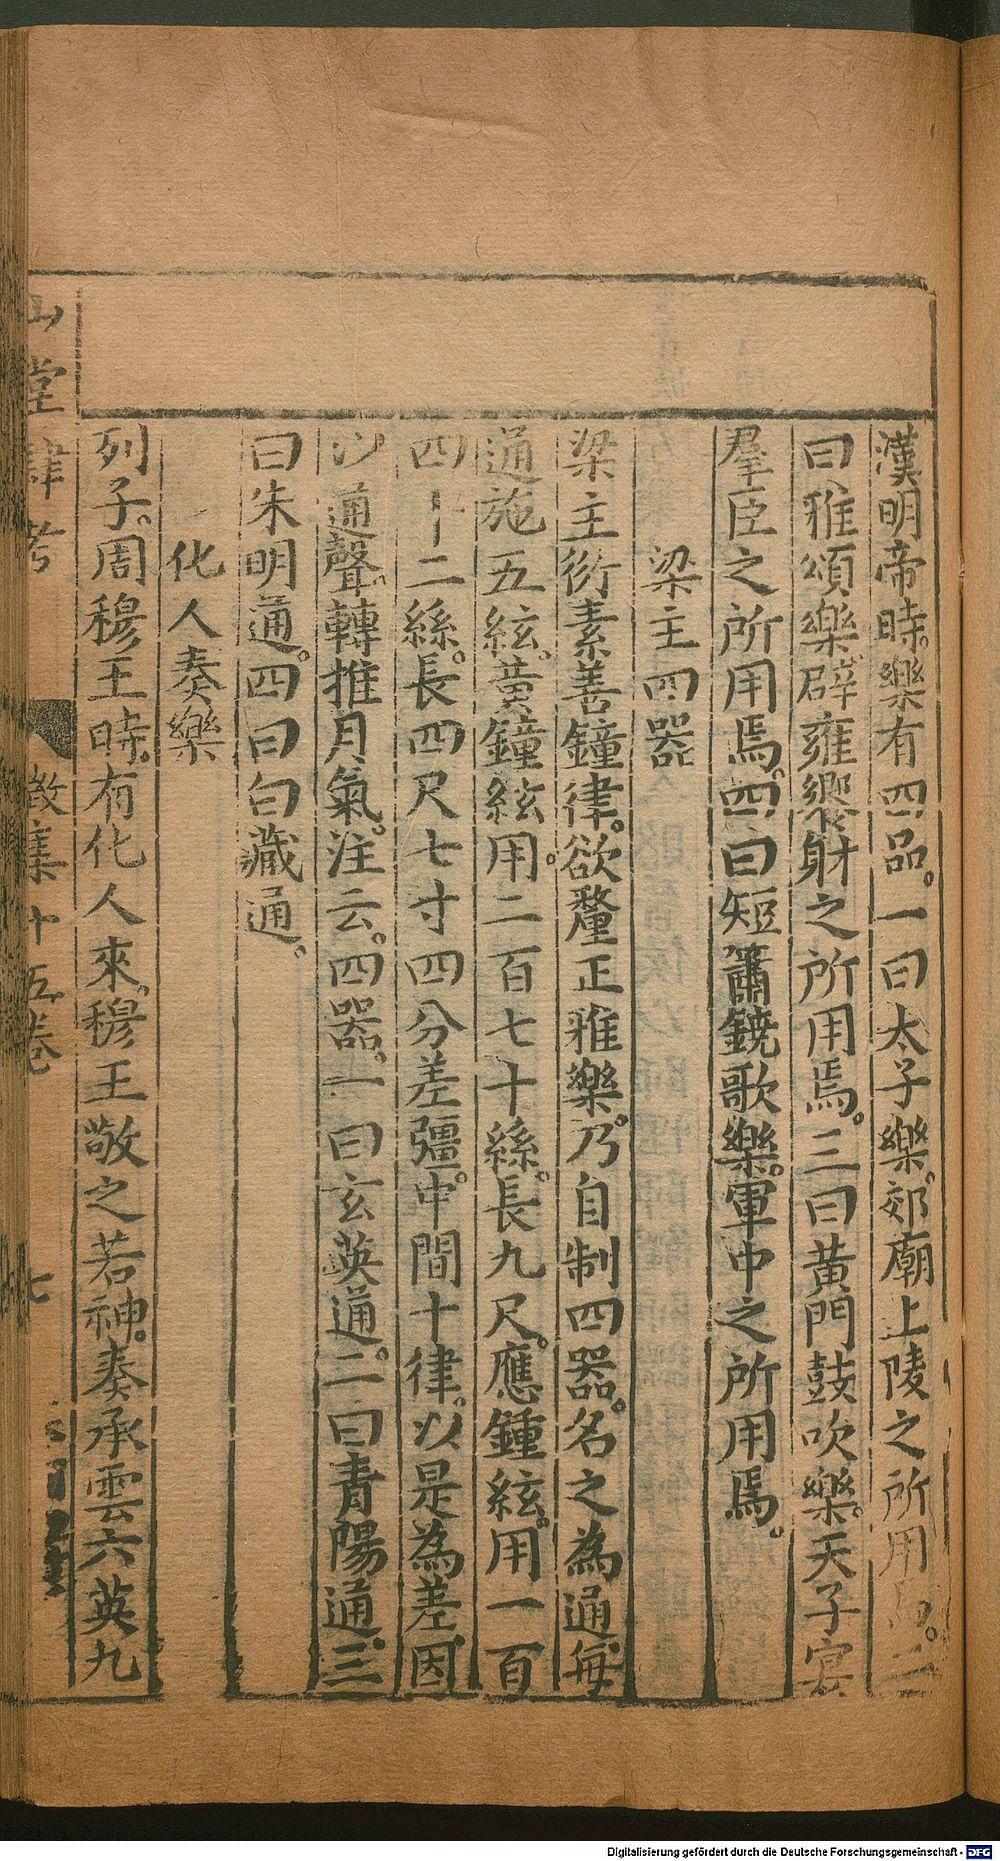 漢明帝時。樂有四品。一曰太子樂。郊廟上陵之所用焉。二
曰雅頌樂。辟雍饗射之所用焉。三曰黃門鼓吹樂。天子宴
羣臣之所用焉。四曰短簫鐃歌樂。軍中之所用焉。
梁主四器
梁主衍素善鐘律。欲釐正雅樂。乃自制四器。名之為通。每
通施五絃。黃鐘絃。用二百七十絲。長九尺。應鍾絃。用一百
四十二絲。長四尺七寸四分差彊。中間十律。以是為差。因
以通聲。轉推月氣。注云。四器。一曰玄英通。二曰青陽通。三
曰朱明通。四曰白藏通。
化人奏樂
列子。周穆王時。有化人來。穆王敬之若神。奏承雲六英九
山堂肆考 徵集十五卷 七
Digitalisierung gefördert durch die Deutsche Forschungsgemeinschaft - DFG